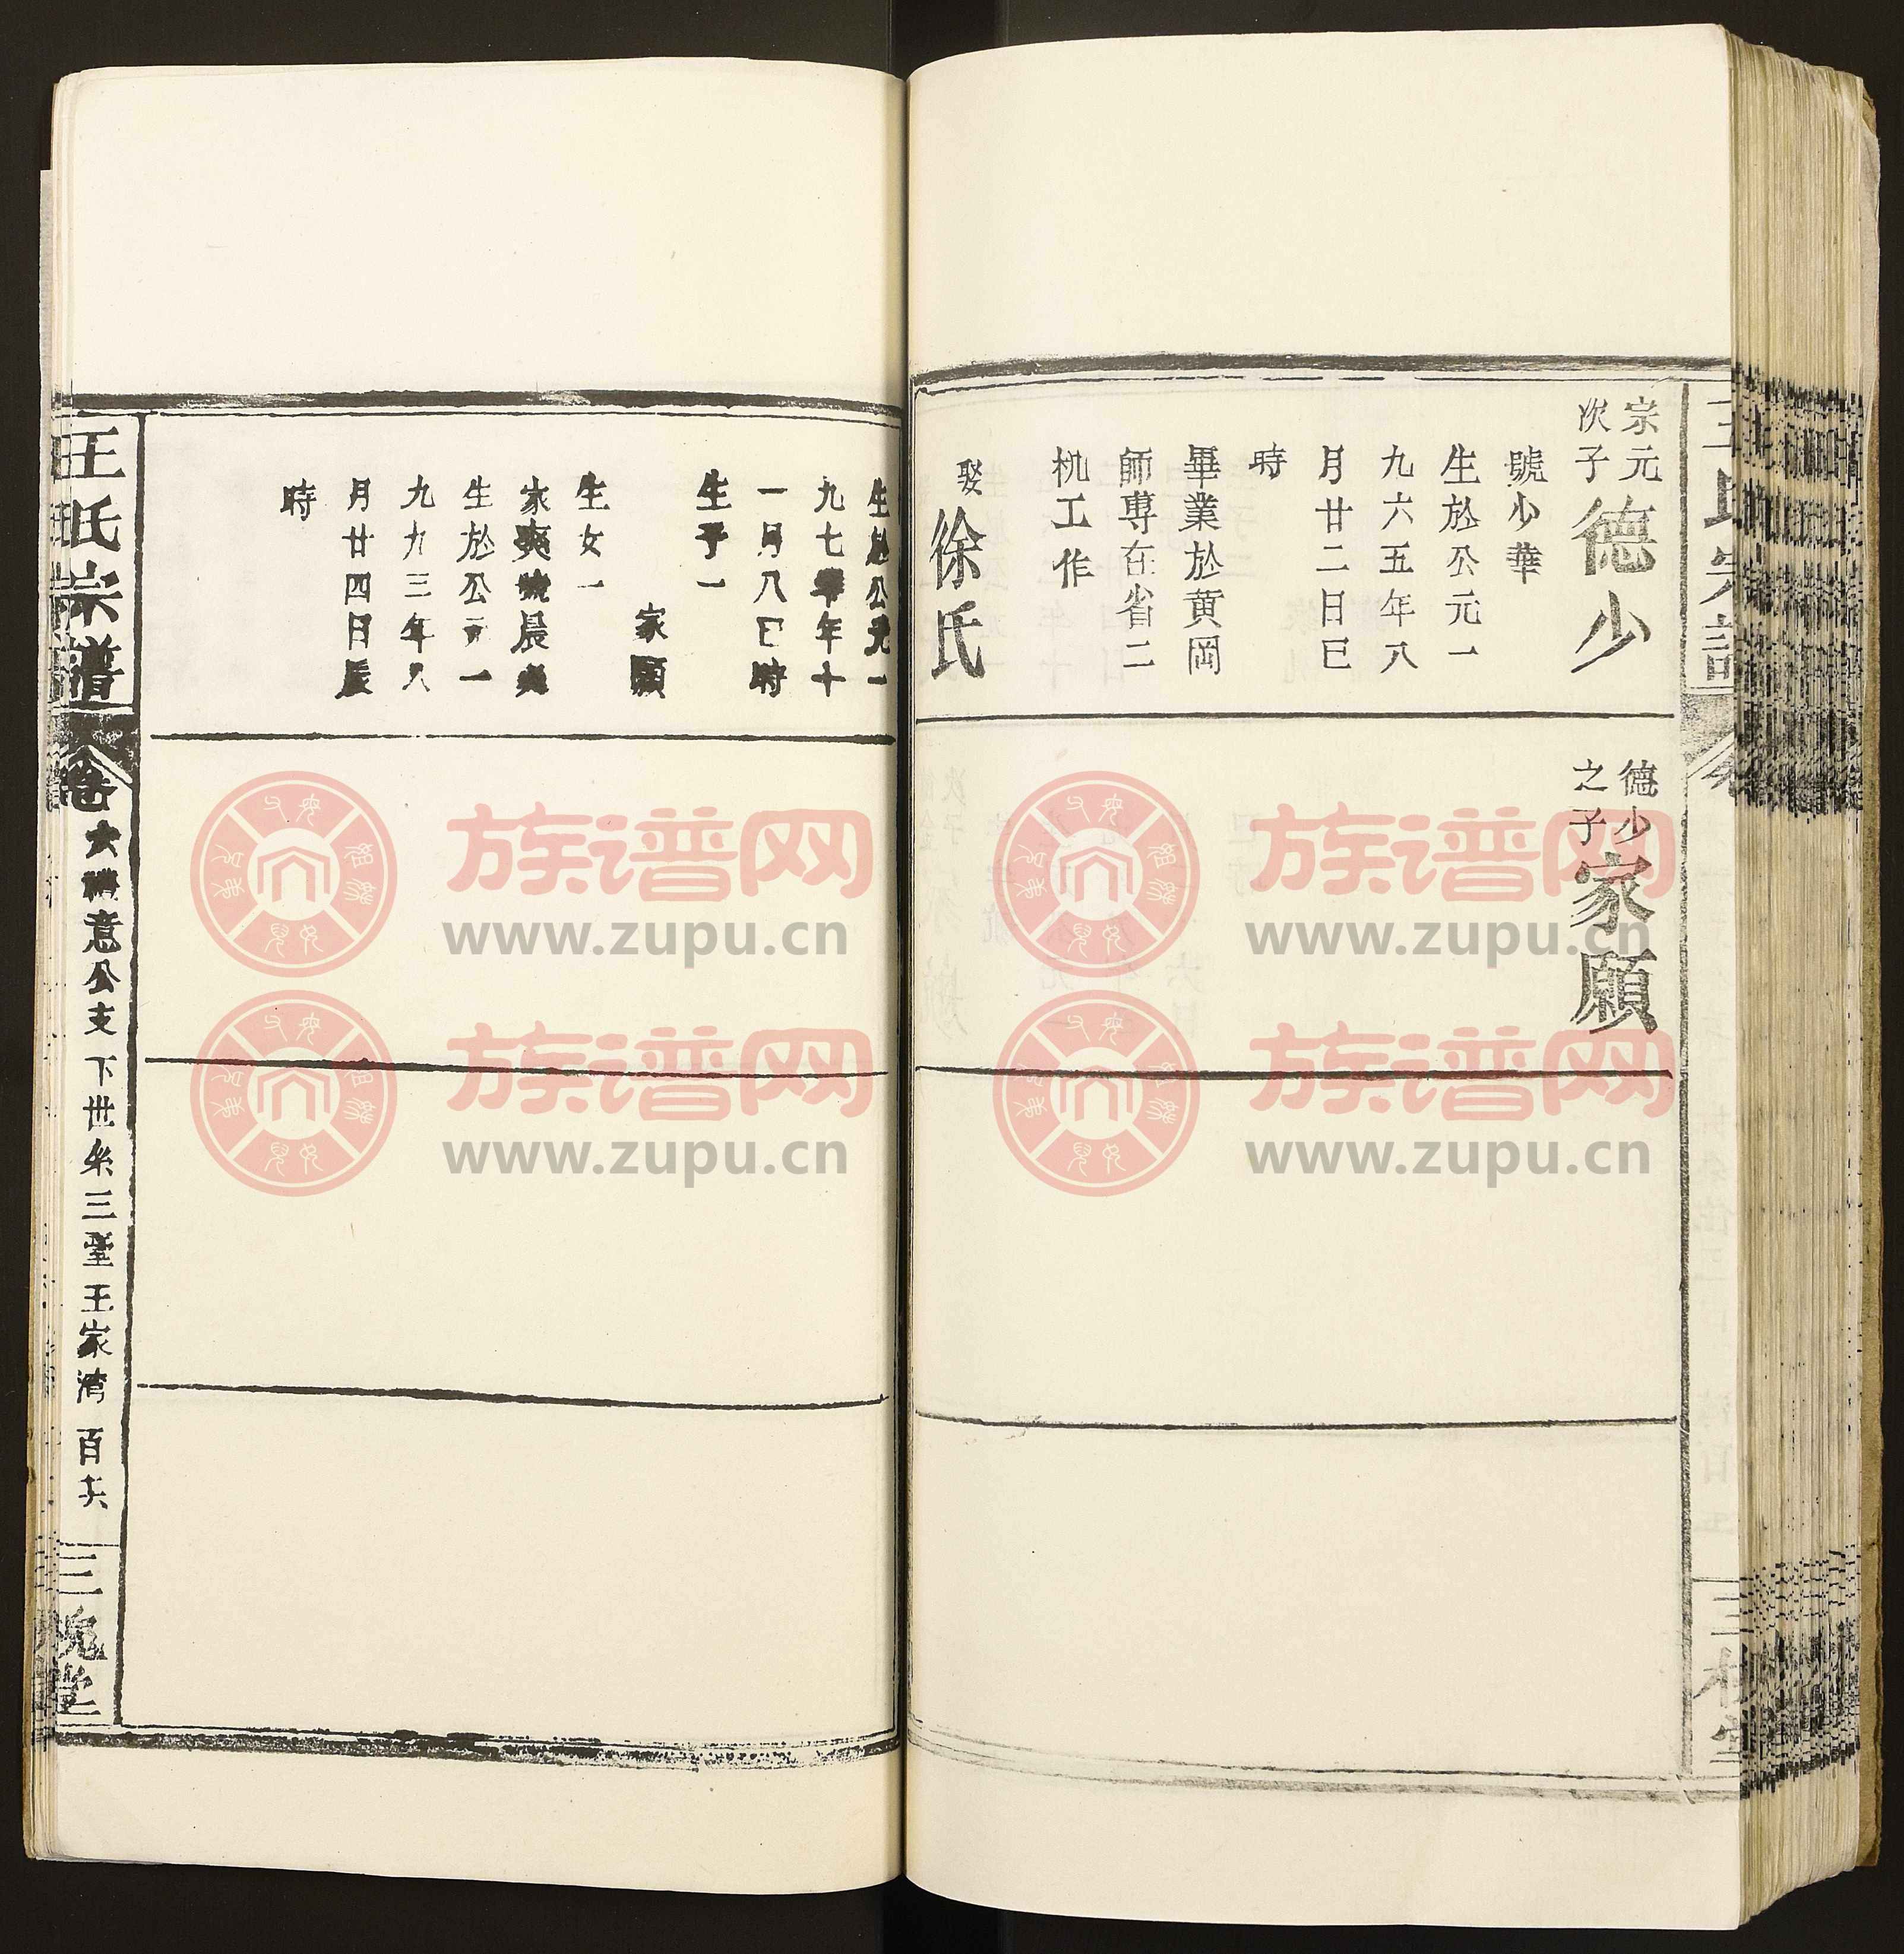 宗元
次子
德少
號少華
生於公元一
九六五年八
月廿二日巳
時
畢業於黄岡
師專在省二
机工作
娶徐氏
德少
之子
家願
生於公元一
九七年十
一月八日時
生子一
家願
生女一
生於公元一
九九三年八
月廿四日辰
時
王氏宗譜
卷
意公支下世系三堂王家湾
三槐堂
族谱网
www.zupu.cn
族谱网
www.zupu.cn
族谱网
www.zupu.cn
族谱网
www.zupu.cn